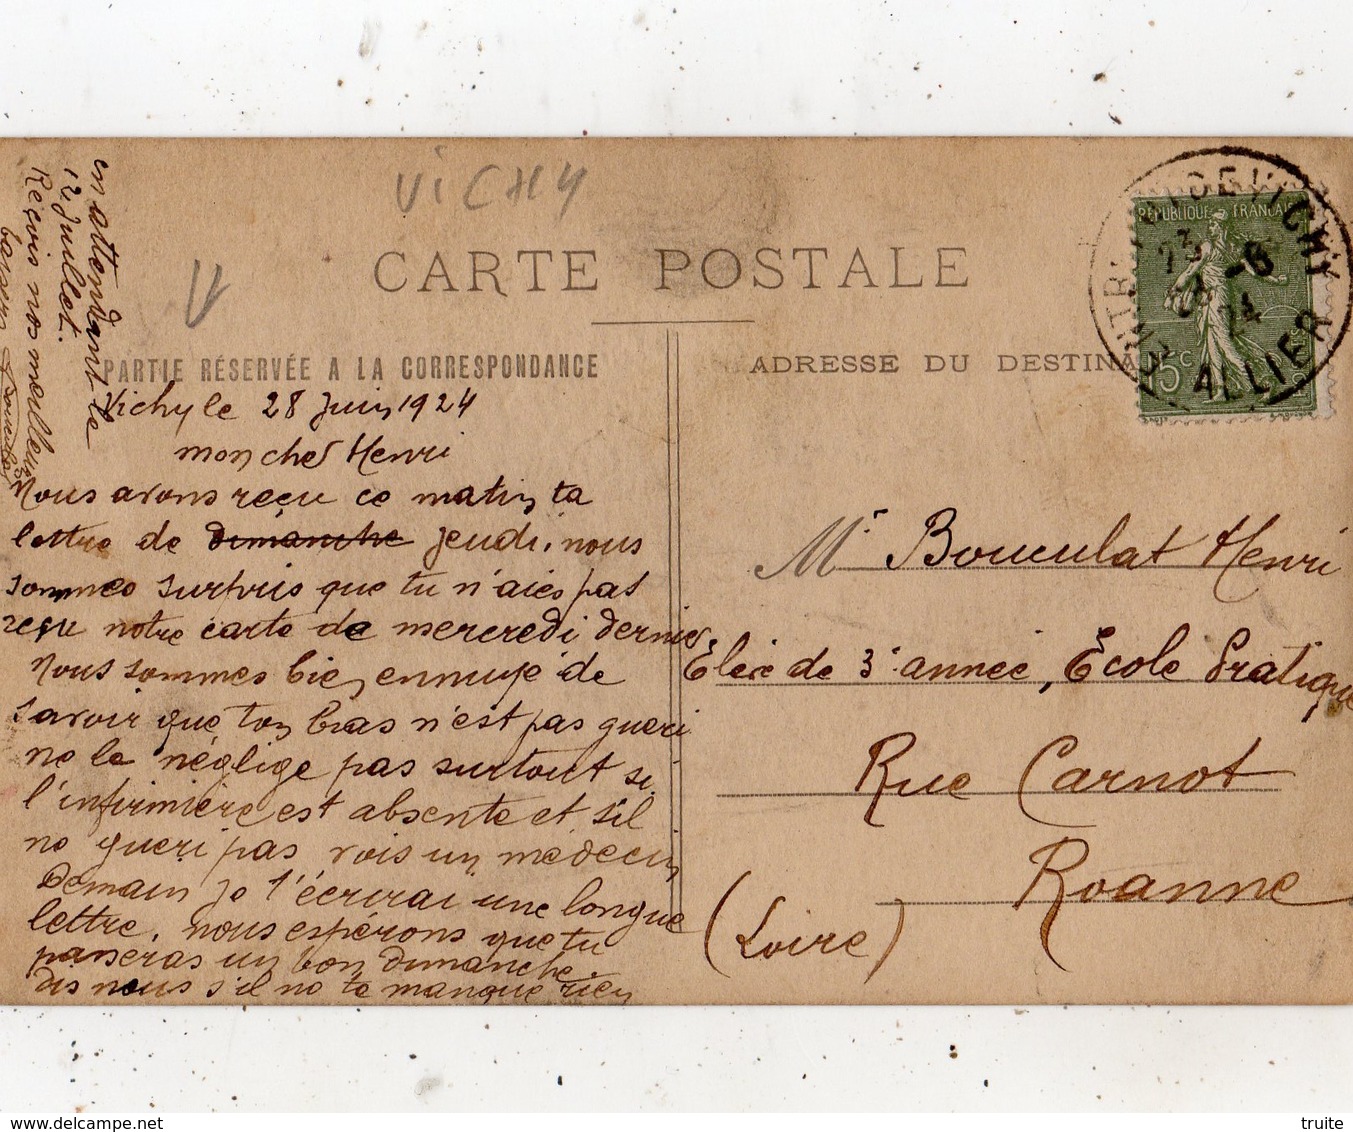 VICHY
V
CARTE POSTALE
PARTIE RÉSERVÉE A LA CORRESPONDANCE
Vichy le 28 Juin 1924
mon cher Henri
Nous avons reçu ce matin ta
lettre de dimanche jeudi, nous
sommes surpris que tu n'aies pas
reçu notre carte de mercredi dernier
Nous sommes bien ennuyé de
savoir que ton bras n'est pas gueri
ne le néglige pas surtout si
l'infirmière est absente et s'il
ne gueri pas vois un médecin
Demain je t'écrirai une longue
lettre, nous espérons que tu
passeras un bon dimanche.
dis nous s'il ne te manque rien
en attendant le
12 juillet.
Reçois nos meilleurs
baisers
ADRESSE DU DESTINA
RÉPUBLIQUE FRANÇAISE
15 c
VICHY
23 -6
24
ALLIER
Mr Bouculat Henri
Elève de 3e année, École Pratique
Rue Carnot
Roanne
(Loire)
truite